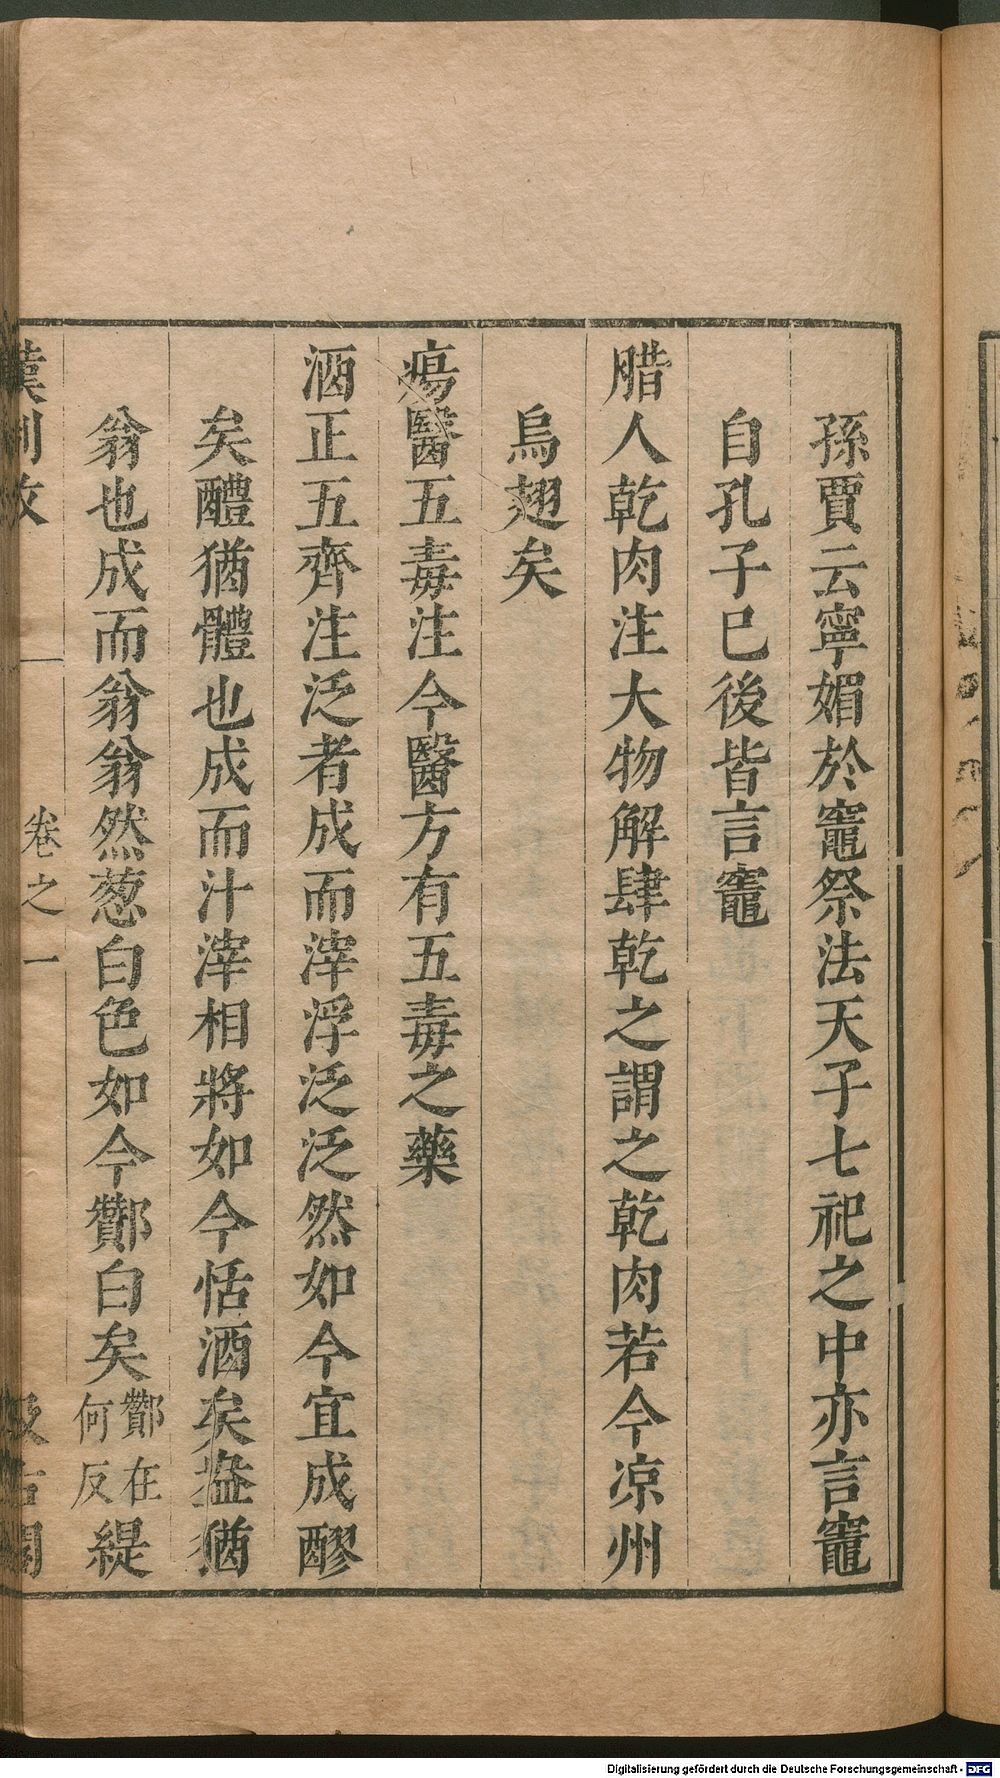 孫賈云寧媚於竈祭法天子七祀之中亦言竈
自孔子已後皆言竈
腊人乾肉注大物解肆乾之謂之乾肉若今凉州
烏翅矣
瘍醫五毒注今醫方有五毒之藥
酒正五齊注泛者成而滓浮泛泛然如今宜成醪
矣醴猶體也成而汁滓相將如今恬酒矣盎猶
翁也成而翁翁然葱白色如今酇白矣酇在何反緹
漢制攷
卷之一
汲古閣
Digitalisierung gefördert durch die Deutsche Forschungsgemeinschaft - DFG